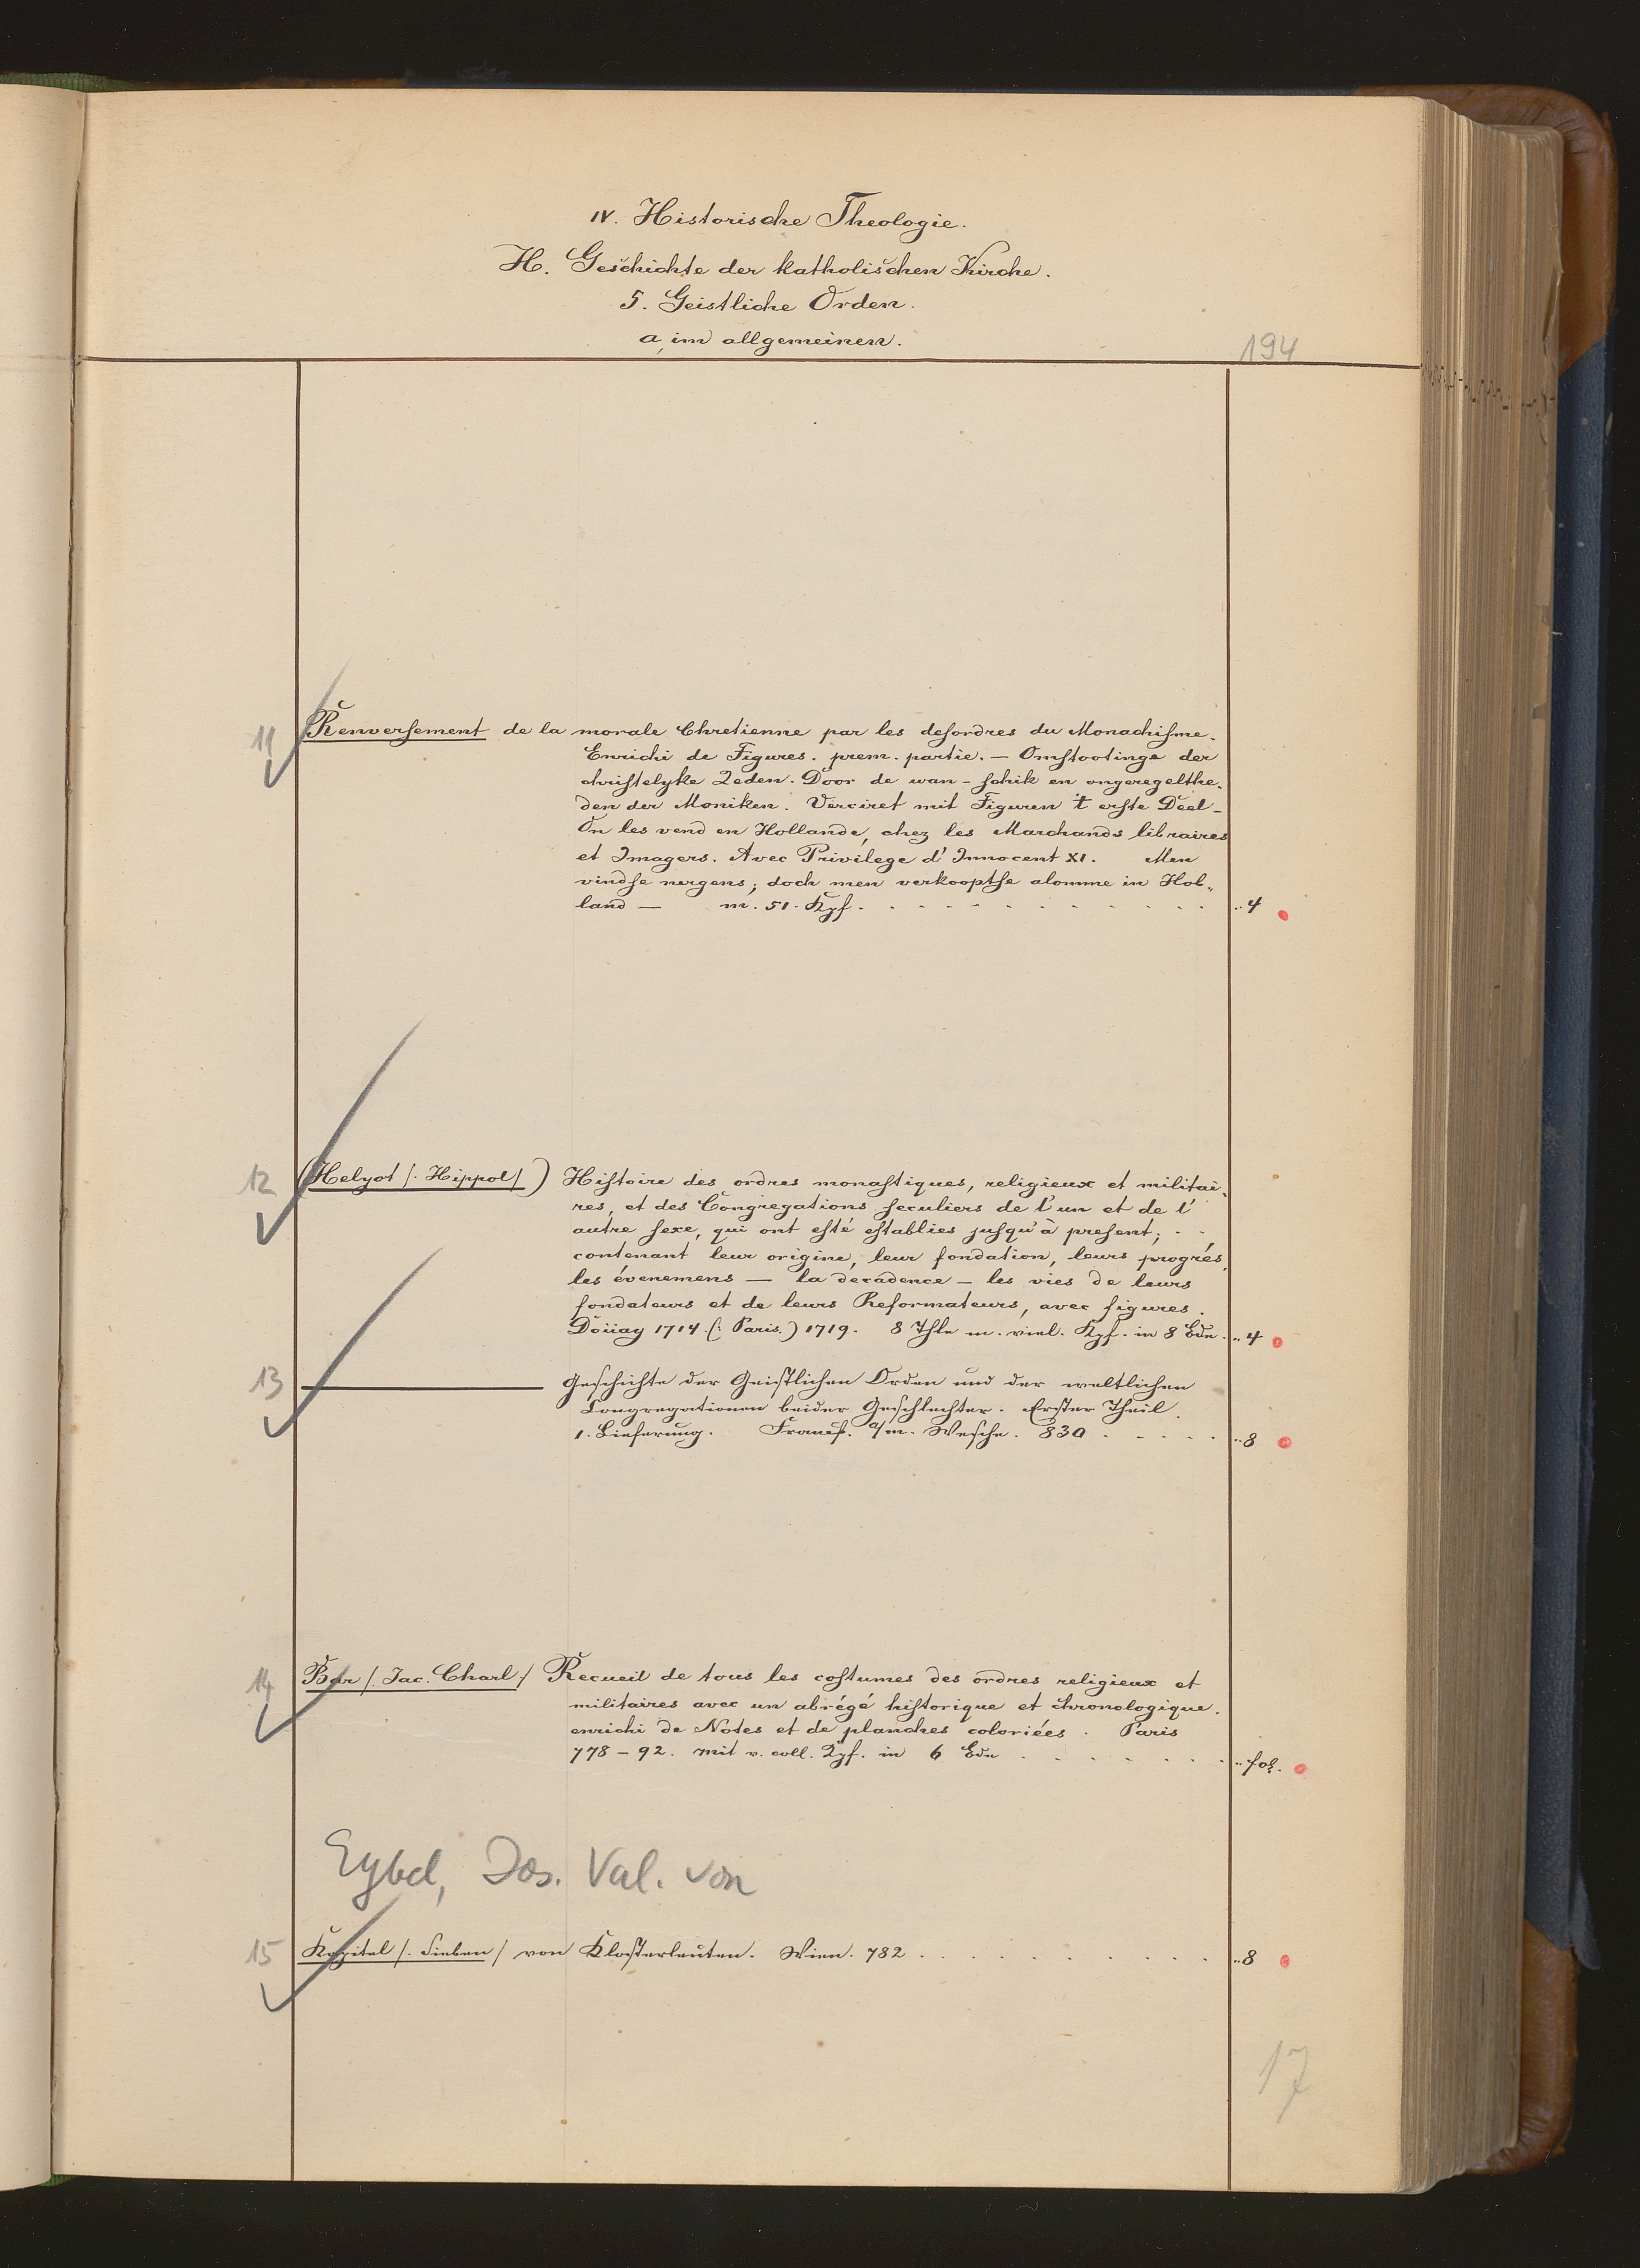 IV. Historische Theologie.
H. Geschichte der katholischen Kirche.
5. Geistliche Orden.
a, im allgemeinen.
194
11 Renversement de la morale Chretienne par les desordres du Monachisme.
Enrichi de Figures. prem. partie. — Omstootinge der
christelyke Zeden. Door de wan-schik en ongeregelthe-
den der Moniken. Verciret mit Figuren 't erste Deel-
On les vend en Hollande, chez les Marchands libraires
et Imagers. Avec Privilege d' Innocent XI. Men
vindse nergens; doch men verkooptse alomme in Hol-
land — m. 51. Kpf. 4
12 (Helyot /: Hippol/) Histoire des ordres monastiques, religieux et militai-
res, et des Congregations seculiers de l'un et de l'
autre sexe, qui ont esté establies jusqu'à present;
contenant leur origine, leur fondation, leurs progrés,
les évenemens — la decadence — les vies de leurs
fondateurs et de leurs Reformateurs, avec figures.
Doüay 1714. (: Paris.) 1719. 8 Thle m. viel. Kpf. in 8 Bdn. 4
13 ——— Geschichte der Geistlichen Orden und der weltlichen
Congregationen beider Geschlechter. Erster Theil.
1. Lieferung. Francf. a/m. Wesche. 830 8
14 Bar /: Jac. Charl./ Recueil de tous les costumes des ordres religieux et
militaires avec un abrégé historique et chronologique.
enrichi de Notes et de planches coloriées. Paris
778-92. mit v. coll. Kpf. in 6 Bdn fol.
Eybel, Jos. Val. von
15 Kapitel /: Sieben/ von Klosterleuten. Wien. 782 8
17